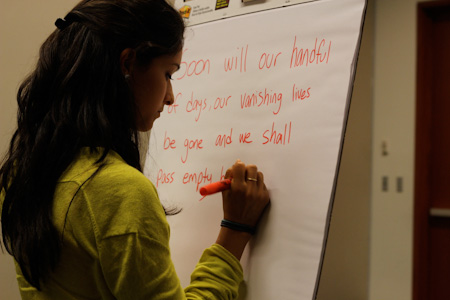 Soon will our handful
of days, our vanishing lives
be gone and we shall
pass empty